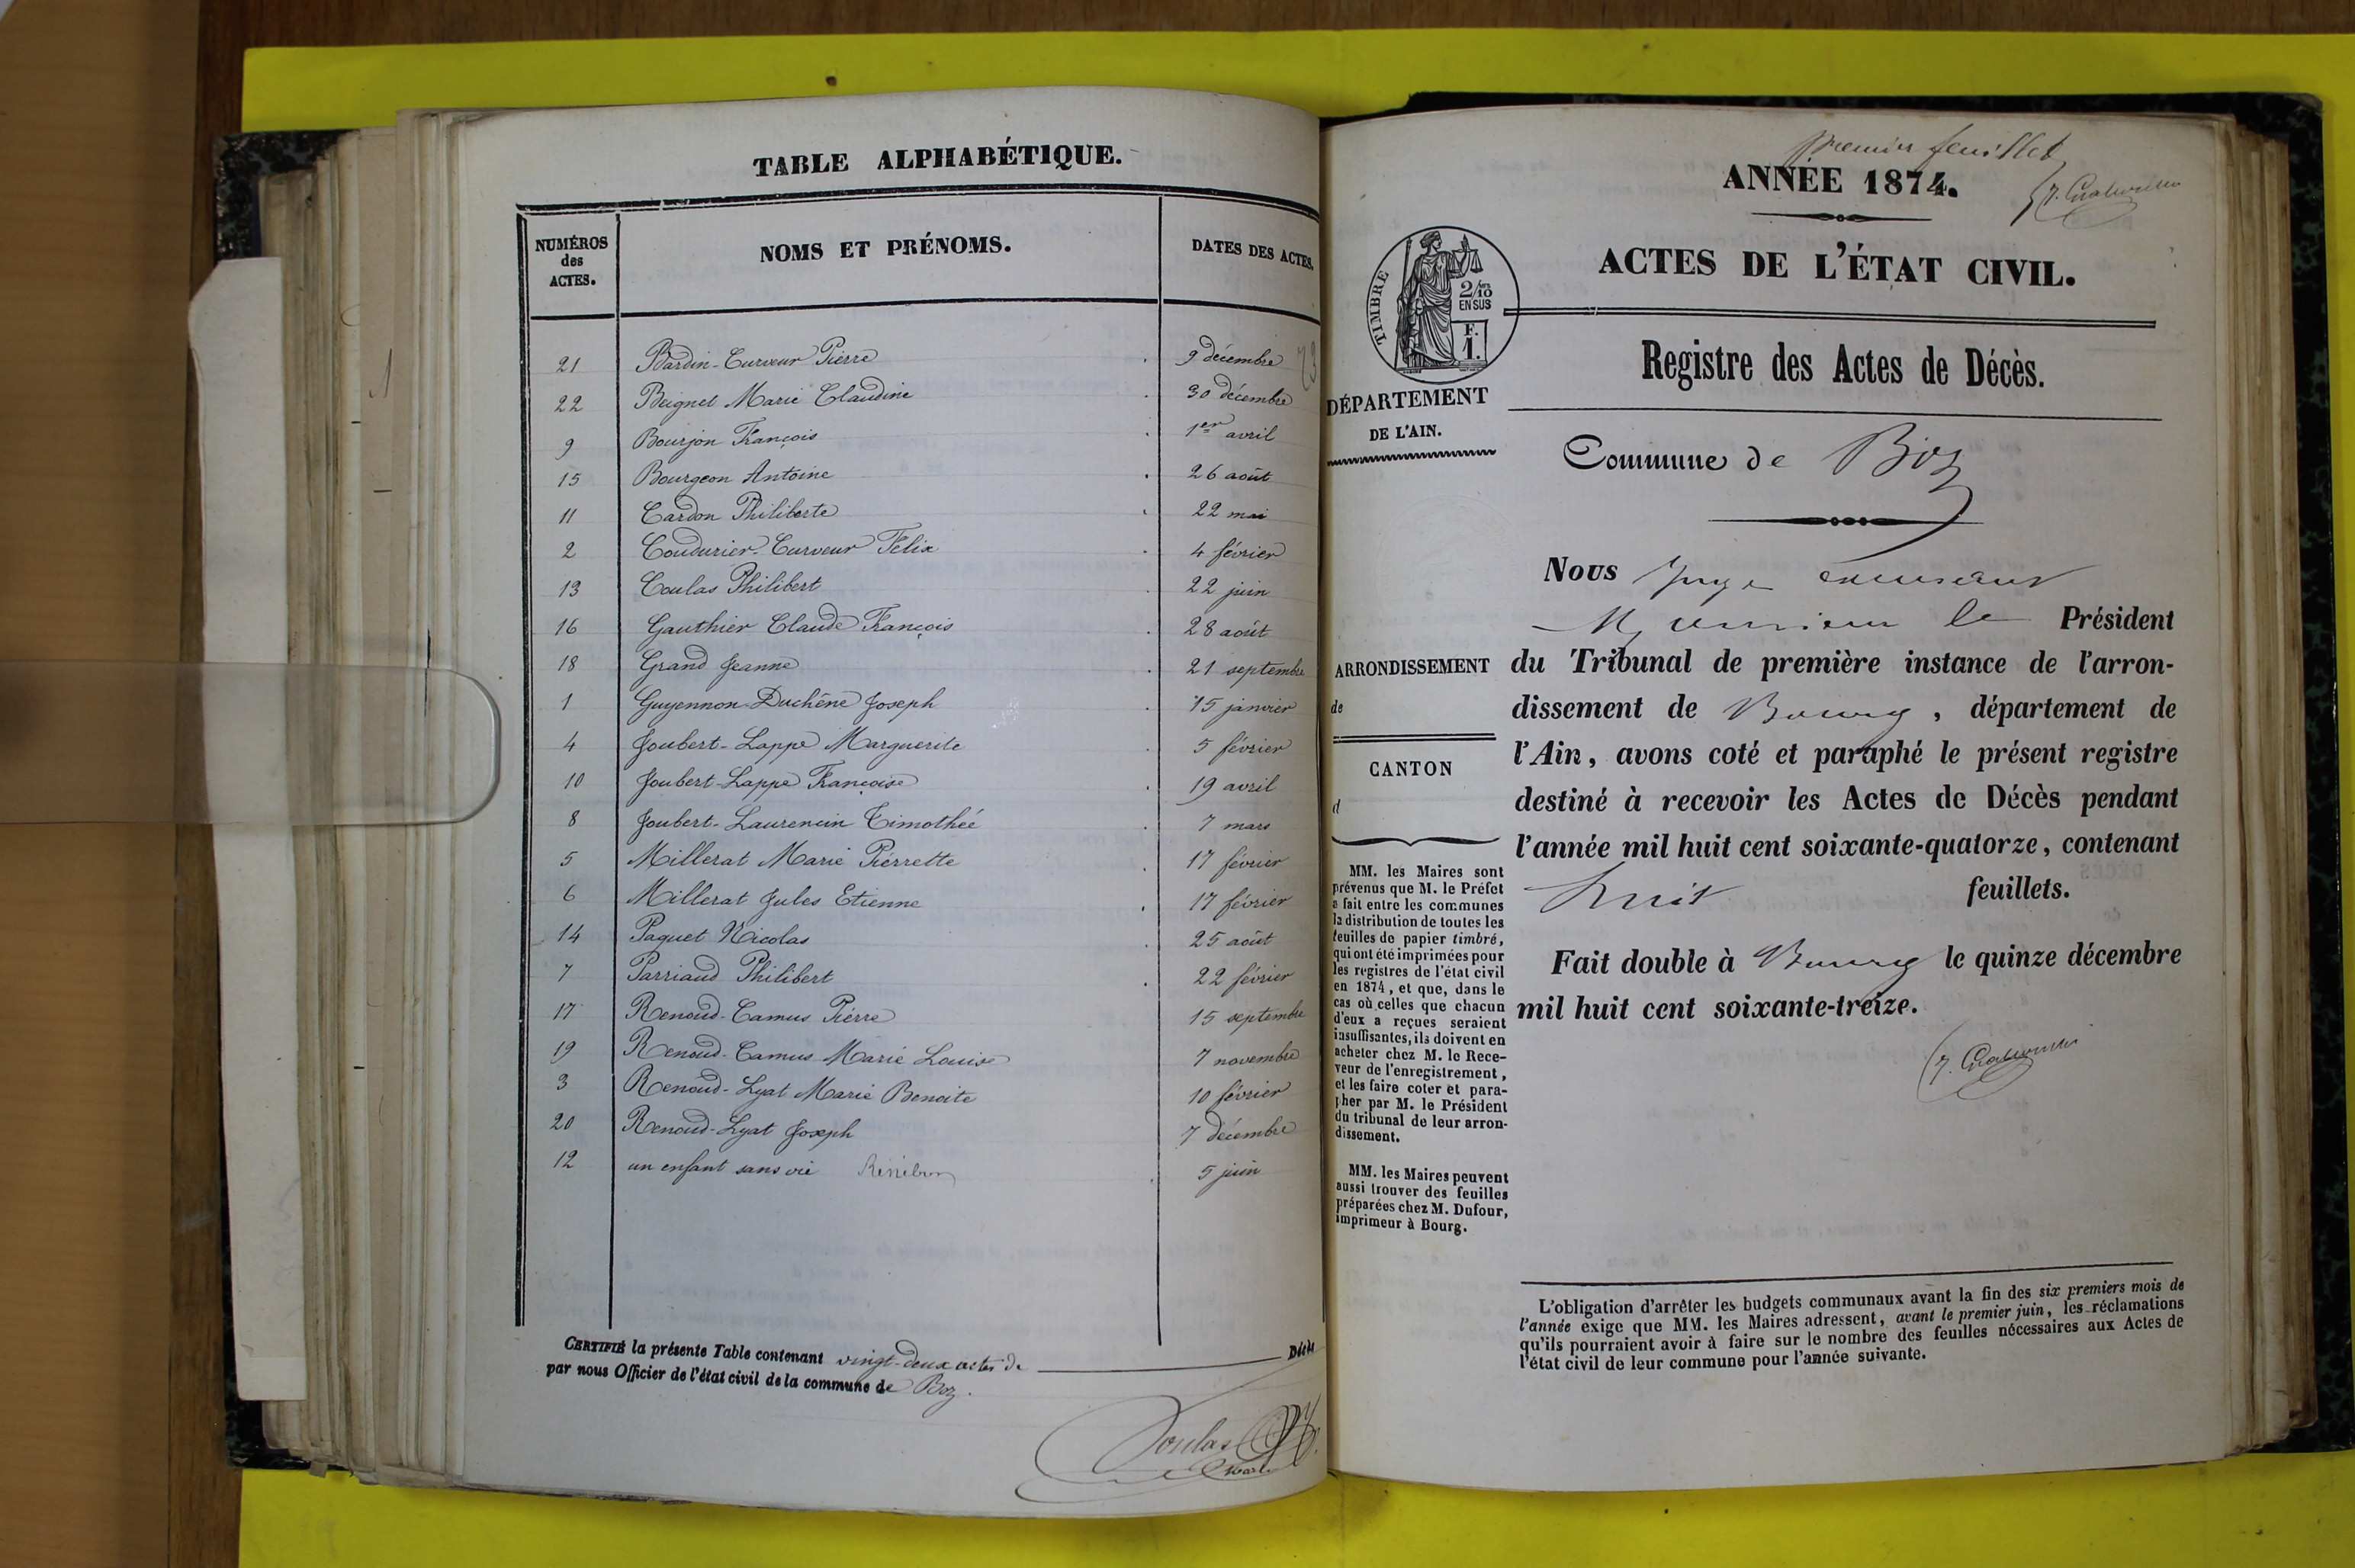 TABLE ALPHABÉTIQUE.
NUMÉROS des ACTES. NOMS ET PRÉNOMS. DATES DES ACTES.
21 Bardin-Curveur Pierre 9 décembre 73
22 Beignet Marie Claudine 30 décembre
9 Bourjon François 1er avril
15 Bourgeon Antoine 26 août
11 Cardon Philiberte 22 mai
2 Coudurier-Curveur Félix 4 février
13 Coulas Philibert 22 juin
16 Gauthier Claude François 28 août
18 Grand Jeanne 21 septembre
1 Guyennon-Duchêne Joseph 15 janvier
4 Joubert-Lappe Marguerite 5 février
10 Joubert-Lappe Françoise 19 avril
8 Joubert-Laurencin Timothée 7 mars
5 Millerat Marie Pierrette 17 février
6 Millerat Jules Etienne 17 février
14 Paquet Nicolas 25 août
7 Parriaud Philibert 22 février
17 Renoud-Camus Pierre 15 septembre
19 Renoud-Camus Marie Louise 7 novembre
3 Renoud-Lyat Marie Benoite 10 février
20 Renoud-Lyat Joseph 7 décembre
12 un enfant sans vie 5 juin
CERTIFIÉ la présente Table contenant vingt-deux actes de Décès
par nous Officier de l'état civil de la commune de Boz.
premier feuillet
ANNÉE 1874.
ACTES DE L'ÉTAT CIVIL.
TIMBRE
2/10 EN SUS
F. 1.
Registre des Actes de Décès.
DÉPARTEMENT
DE L'AIN.
Commune de Boz
Nous Juge
Monsieur le Président
ARRONDISSEMENT
de
CANTON
d
du Tribunal de première instance de l'arron-
dissement de Bourg, département de
l'Ain, avons coté et paraphé le présent registre
destiné à recevoir les Actes de Décès pendant
l'année mil huit cent soixante-quatorze, contenant
huit feuillets.
Fait double à Bourg le quinze décembre
mil huit cent soixante-treize.
MM. les Maires sont
prévenus que M. le Préfet
a fait entre les communes
la distribution de toutes les
feuilles de papier timbré,
qui ont été imprimées pour
les registres de l'état civil
en 1874, et que, dans le
cas où celles que chacun
d'eux a reçues seraient
insuffisantes, ils doivent en
acheter chez M. le Rece-
veur de l'enregistrement,
et les faire coter et para-
pher par M. le Président
du tribunal de leur arron-
dissement.
MM. les Maires peuvent
aussi trouver des feuilles
préparées chez M. Dufour,
imprimeur à Bourg.
L'obligation d'arrêter les budgets communaux avant la fin des six premiers mois de
l'année exige que MM. les Maires adressent, avant le premier juin, les réclamations
qu'ils pourraient avoir à faire sur le nombre des feuilles nécessaires aux Actes de
l'état civil de leur commune pour l'année suivante.